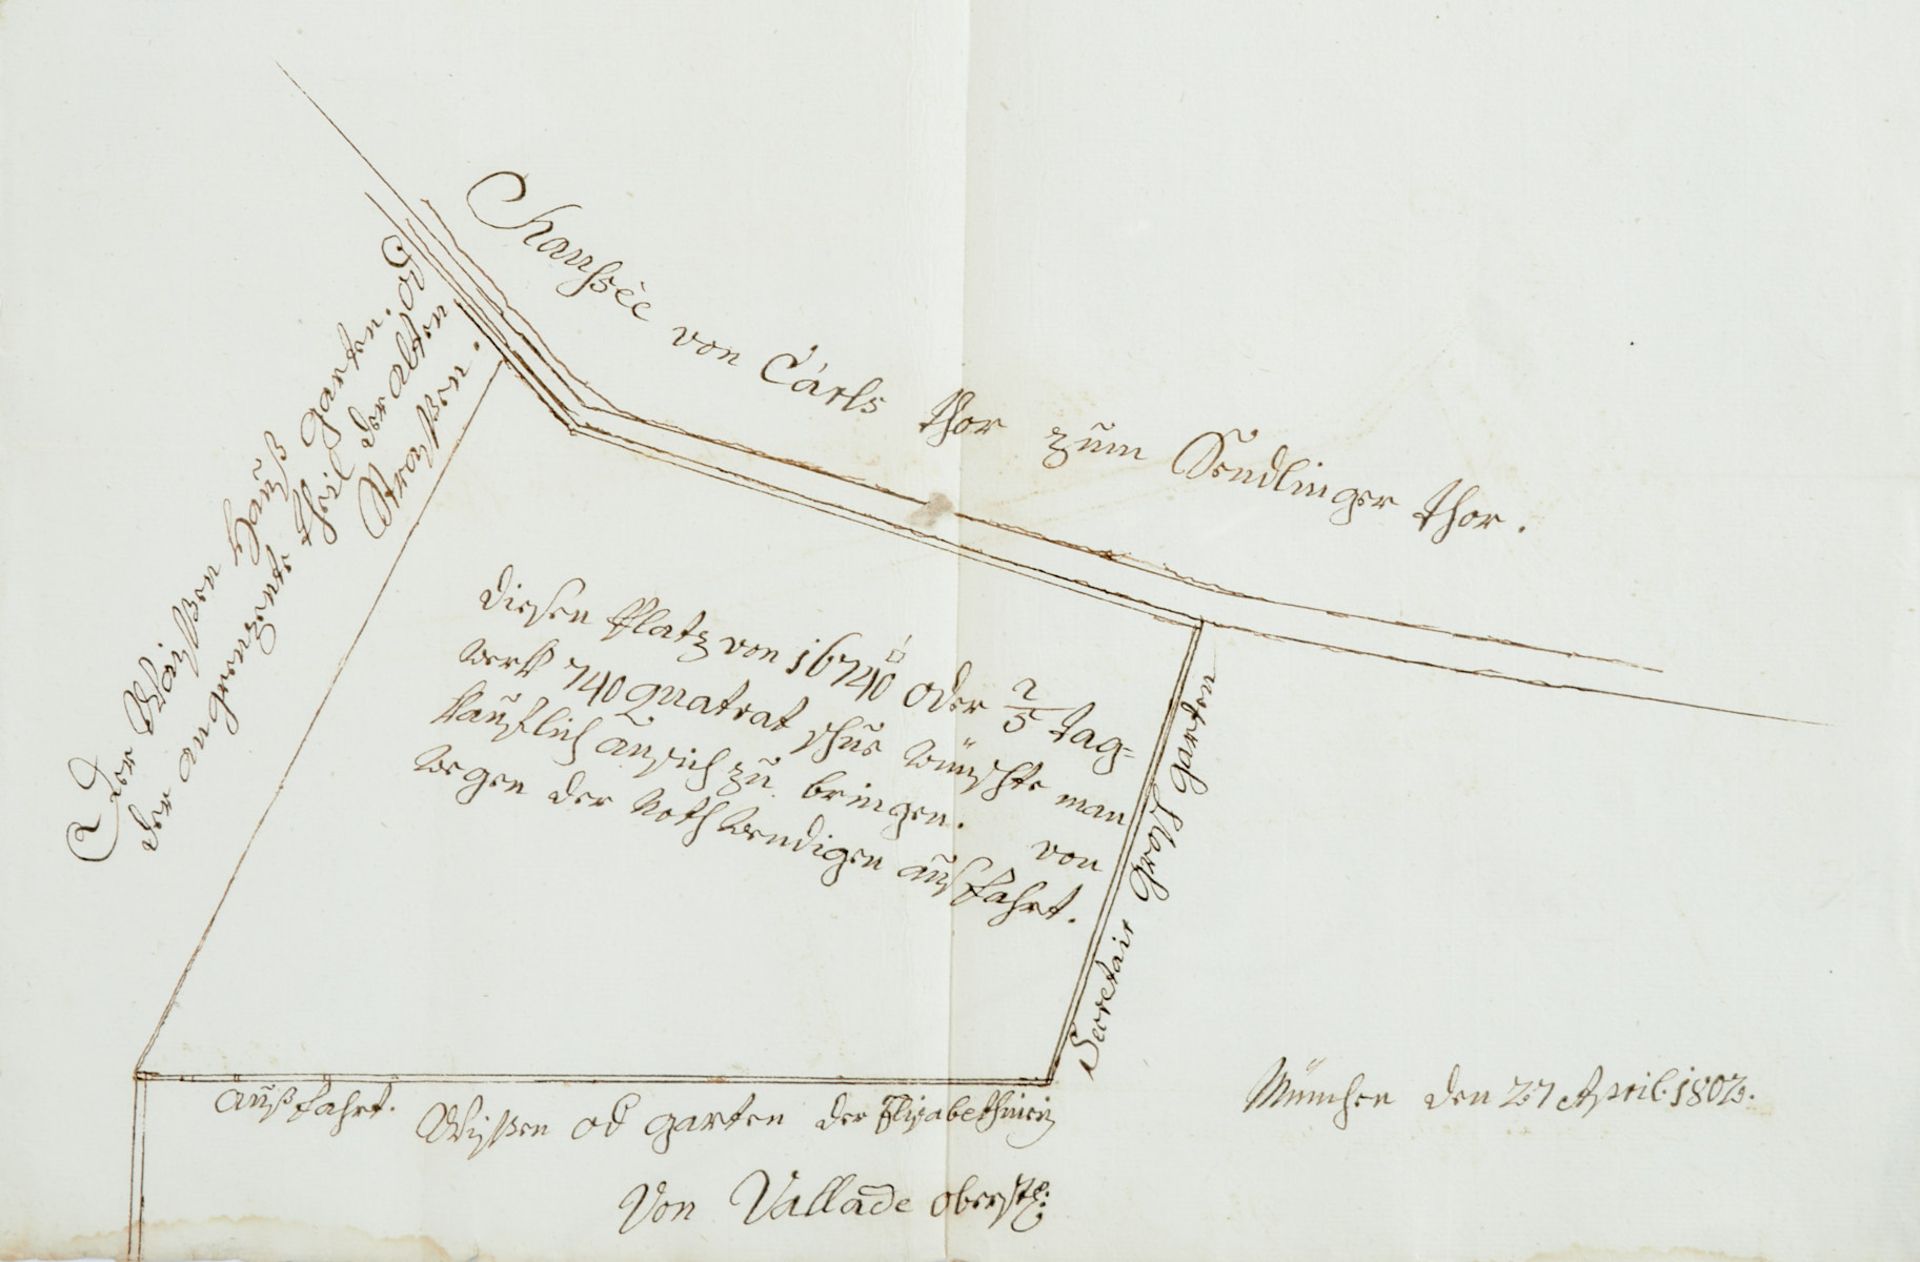 Chaussèe von Carls thor zum Sendlinger thor.
Der Waissen Hauß garten.
der angrenzente theil
der alten
Strassen.
diesen Platz von 16740□ oder 2/5 tag=
werk 740 quatrat schue wünschte man
käuflich an sich zu bringen. von
wegen der nothwendigen ausfahrt.
Secretair Grossl garten
außfahrt.
Wissen od garten der Elisabethinen
München den 27 April 1802.
Von Vallade oberst